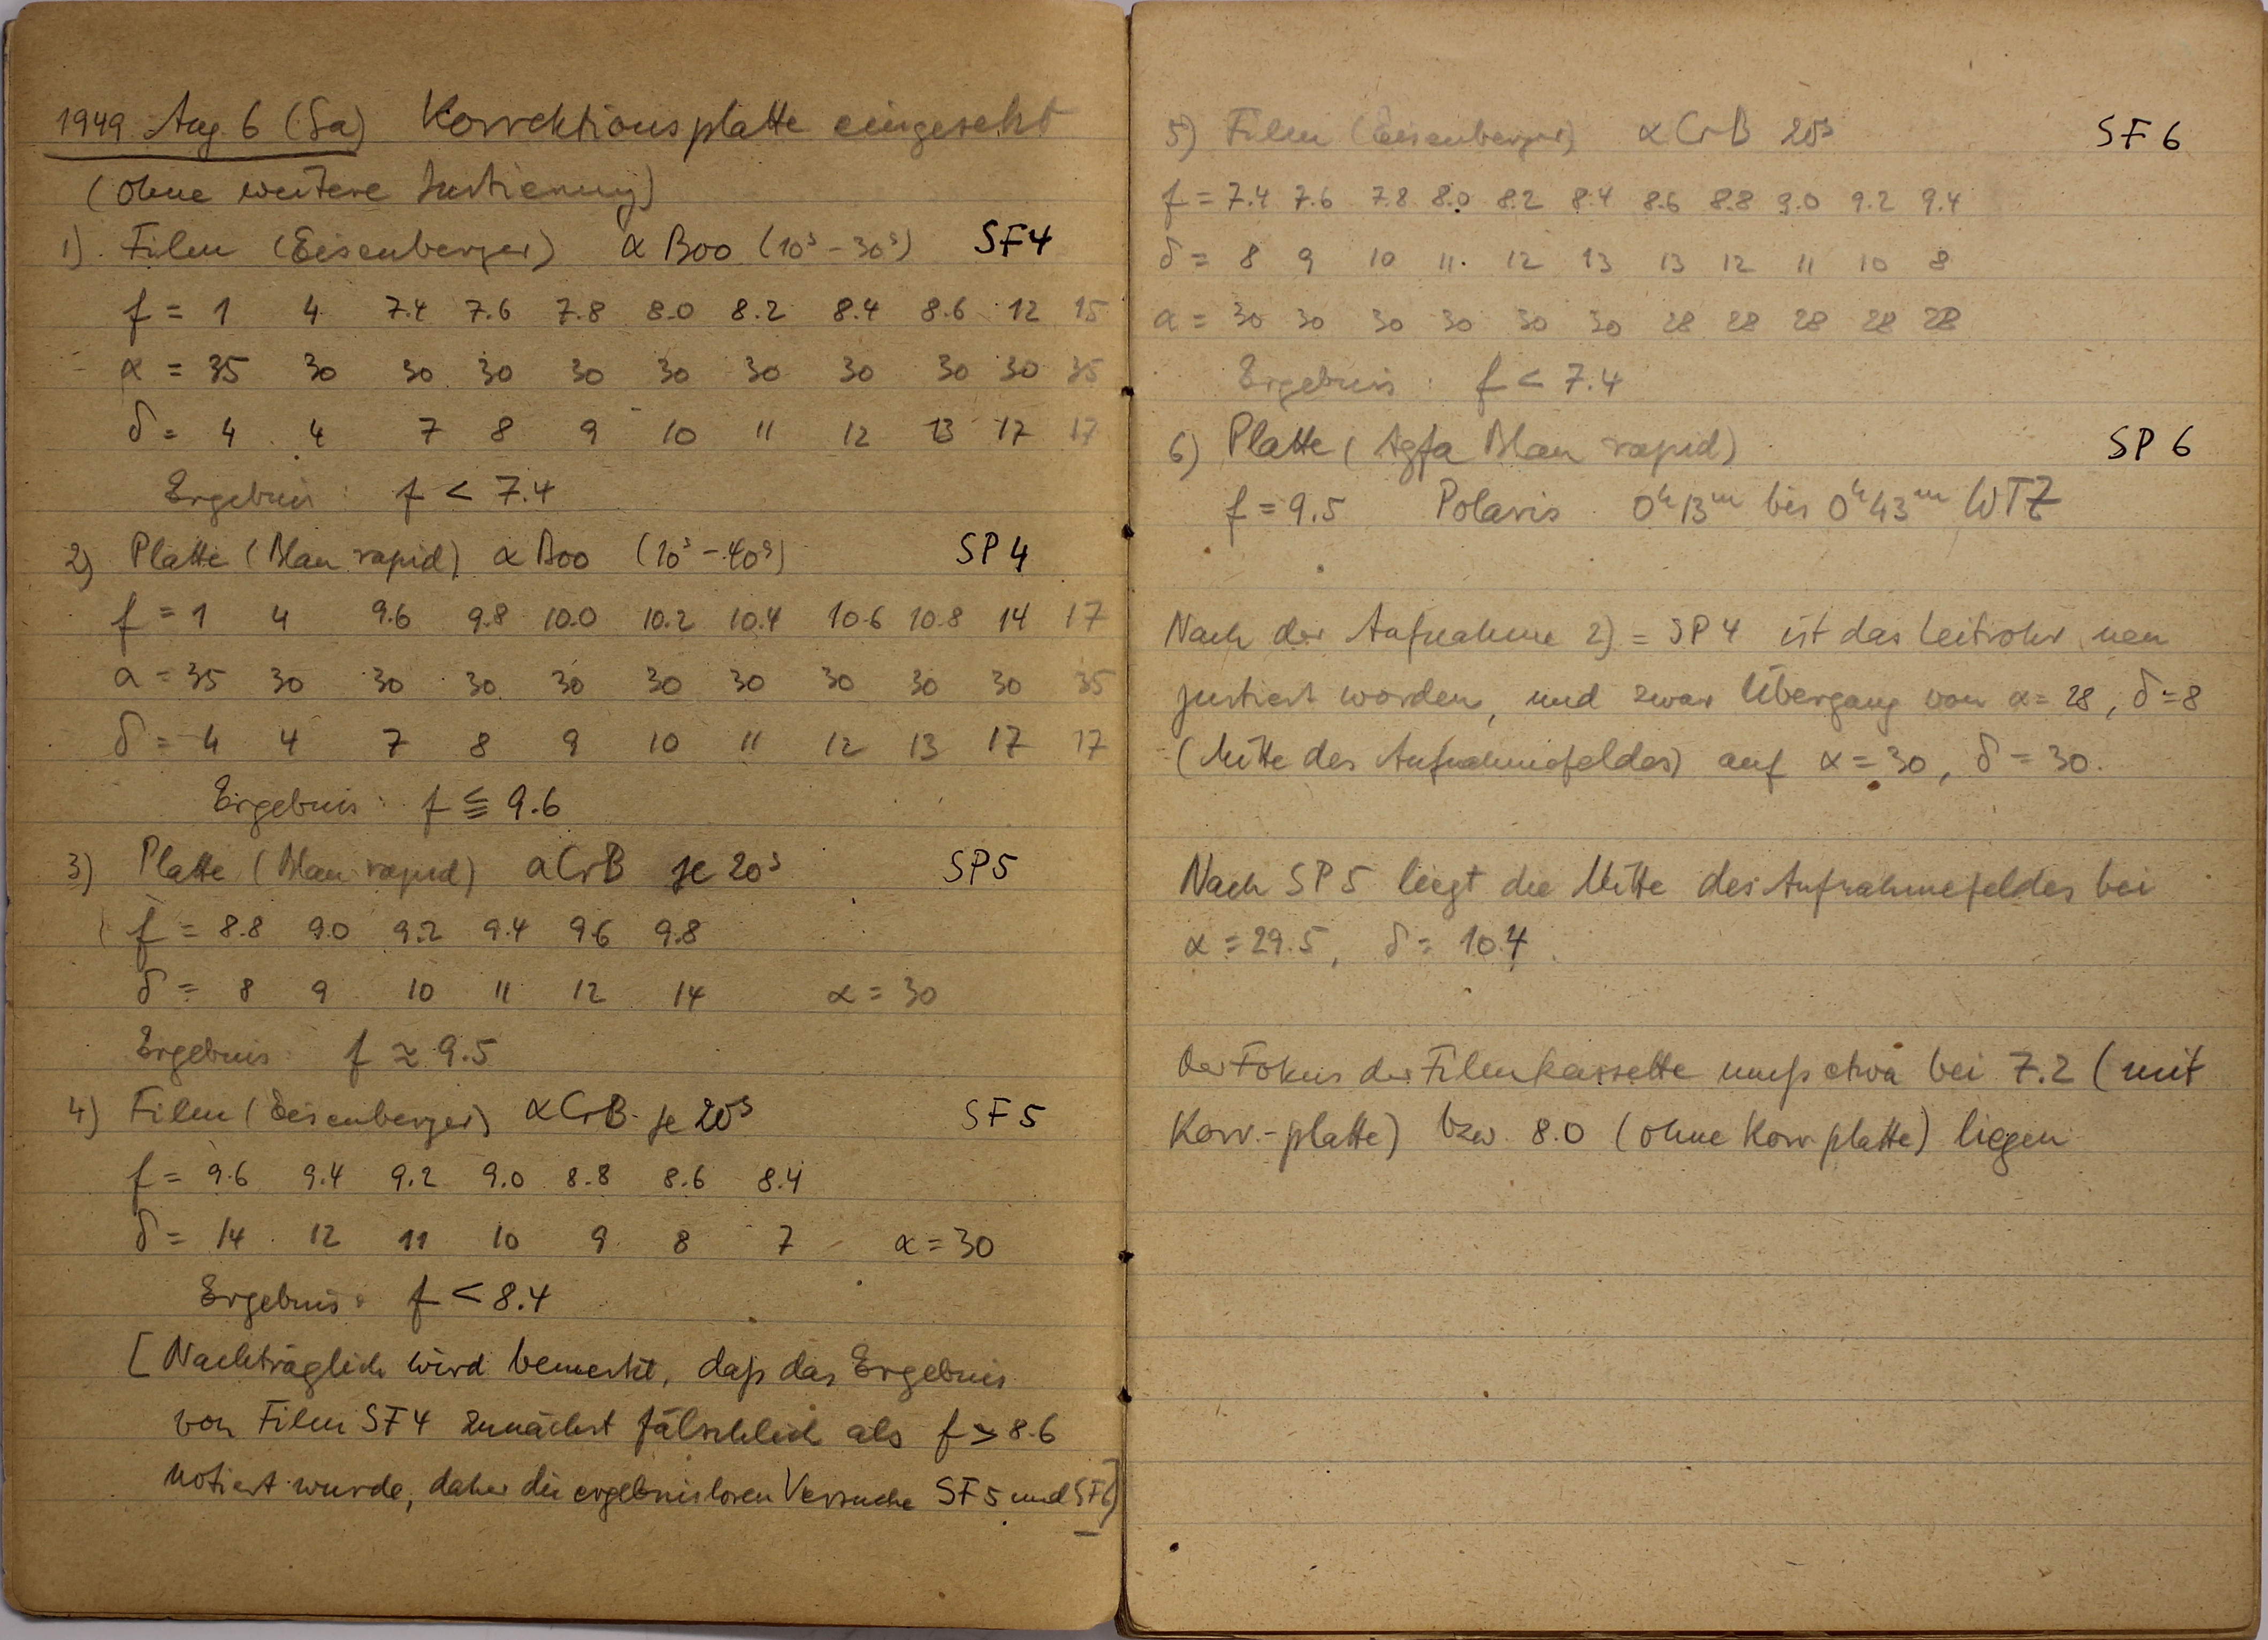 1949 Aug 6 (Sa) Korrektionsplatte eingesetzt
(ohne weitere Justierung)
1) Film (Eisenberger) α Boo (10ˢ – 30ˢ) SF4
f = 1 4 7.4 7.6 7.8 8.0 8.2 8.4 8.6 12 15
α = 35 30 30 30 30 30 30 30 30 30 35
δ = 4 4 7 8 9 10 11 12 13 17 17
Ergebnis: f < 7.4
2) Platte (Blau rapid) α Boo (10ˢ – 40ˢ) SP4
f = 1 4 9.6 9.8 10.0 10.2 10.4 10.6 10.8 14 17
α = 35 30 30 30 30 30 30 30 30 30 35
δ = 4 4 7 8 9 10 11 12 13 17 17
Ergebnis: f ≦ 9.6
3) Platte (Blau rapid) α CrB je 20ˢ SP5
f = 8.8 9.0 9.2 9.4 9.6 9.8
δ = 8 9 10 11 12 14 α = 30
Ergebnis: f ≈ 9.5
4) Film (Eisenberger) α CrB je 20ˢ SF5
f = 9.6 9.4 9.2 9.0 8.8 8.6 8.4
δ = 14 12 11 10 9 8 7 α = 30
Ergebnis: f < 8.4
[Nachträglich wird bemerkt, daß das Ergebnis
von Film SF4 zunächst fälschlich als f > 8.6
notiert wurde, daher die ergebnislosen Versuche SF5 und SF6]
5) Film (Eisenberger) α CrB 20ˢ SF6
f = 7.4 7.6 7.8 8.0 8.2 8.4 8.6 8.8 9.0 9.2 9.4
δ = 8 9 10 11 12 13 13 12 11 10 8
α = 30 30 30 30 30 30 28 28 28 28 28
Ergebnis: f < 7.4
6) Platte (Agfa Blau rapid) SP6
f = 9.5 Polaris 0ʰ13ᵐ bis 0ʰ43ᵐ WTZ
Nach der Aufnahme 2) = SP4 ist das Leitrohr neu
justiert worden, und zwar Übergang von α = 28, δ = 8
(Mitte des Aufnahmefeldes) auf α = 30, δ = 30.
Nach SP5 liegt die Mitte des Aufnahmefeldes bei
α = 29.5, δ = 10.4.
Der Fokus der Filmkassette muß etwa bei 7.2 (mit
Korr.-platte) bzw. 8.0 (ohne Korr.platte) liegen